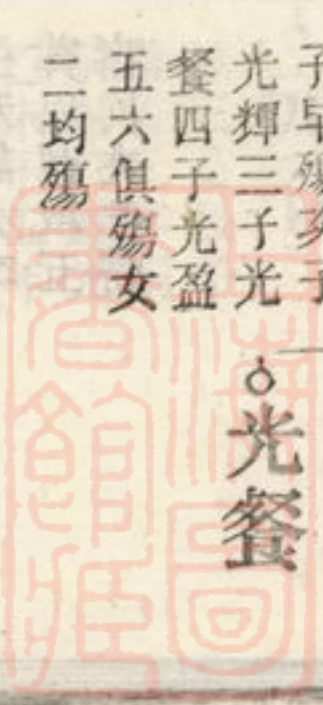 子早殤次子
光輝三子光
餐四子光盈
五六俱殤女
二均殤
光餐